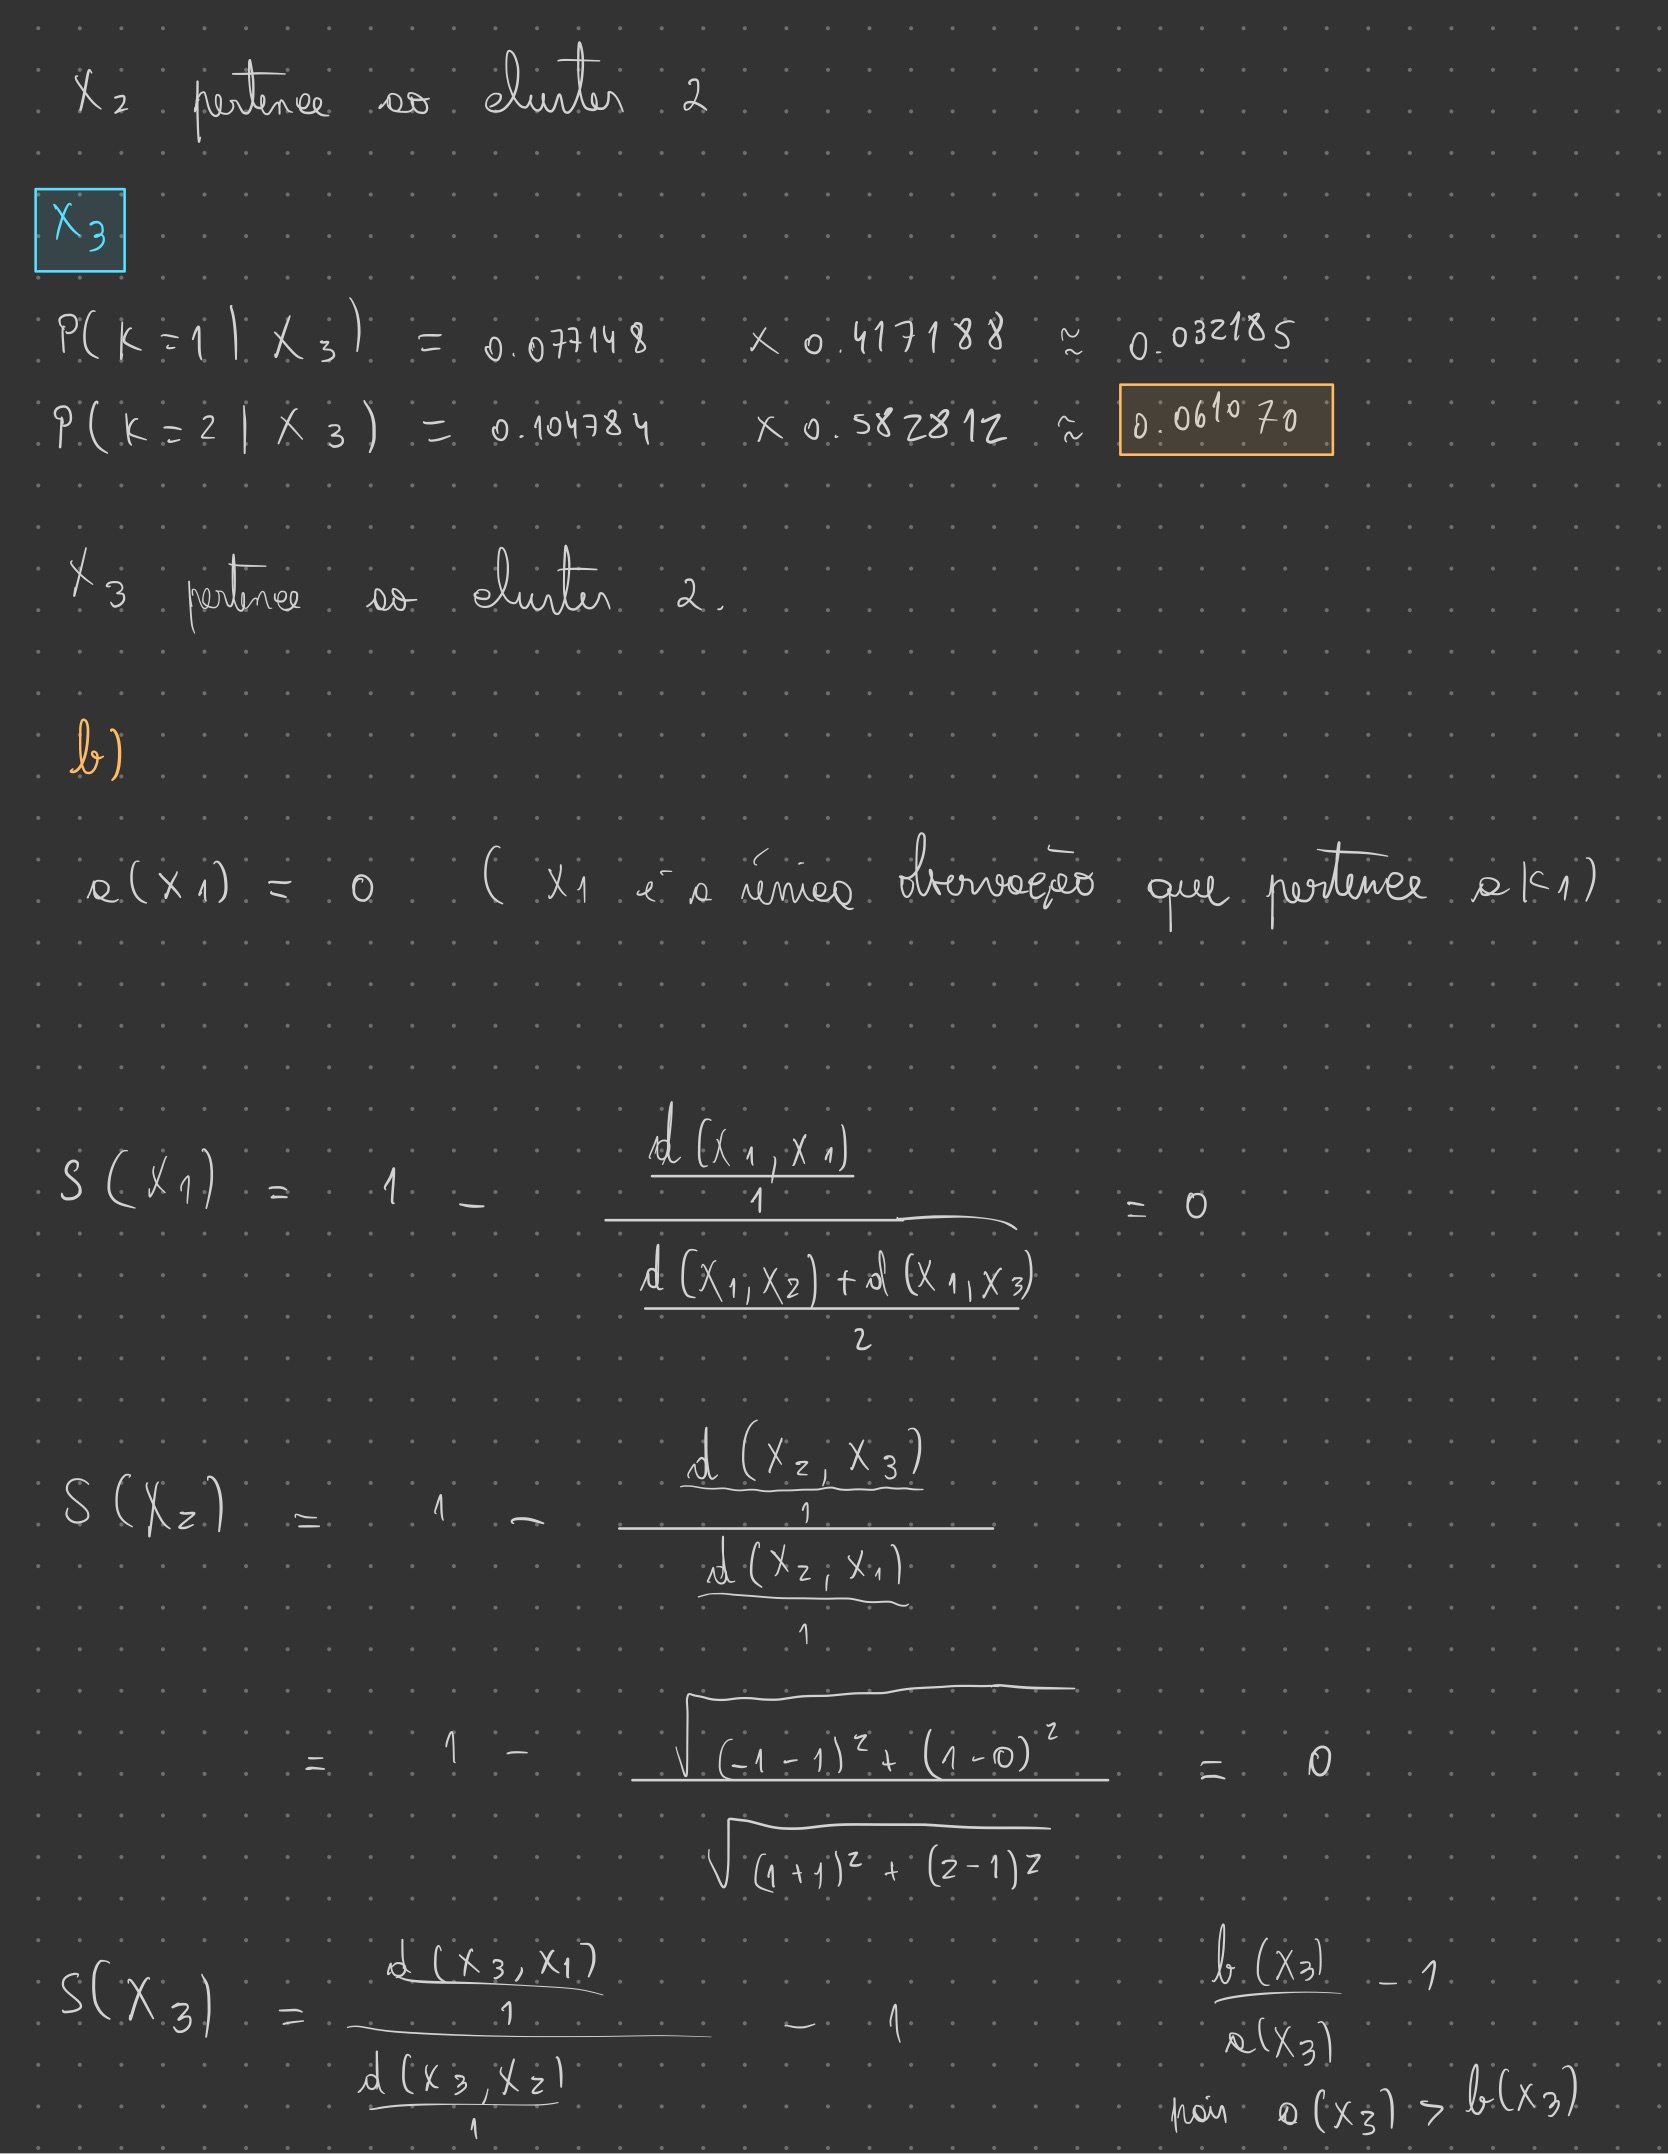 X₂ pertence ao cluster 2
X₃
P(k=1 | X₃) = 0.077148 × 0.417188 ≈ 0.032185
P(k=2 | X₃) = 0.104784 × 0.582812 ≈ 0.061070
X₃ pertence ao cluster 2.
b)
a(X1) = 0 ( X1 é a única observação que pertence a k1)
S(X1) = 1 - (d(X1,X1)/1) / ((d(X1,X2)+d(X1,X3))/2) = 0
S(X2) = 1 - (d(X2,X3)/1) / (d(X2,X1)/1)
= 1 - √((-1-1)²+(1-0)²) / √((1+1)²+(2-1)²) = 0
S(X3) = (d(X3,X1)/1) / (d(X3,X2)/1) - 1
b(X3)/a(X3) - 1
pois a(X3) > b(X3)